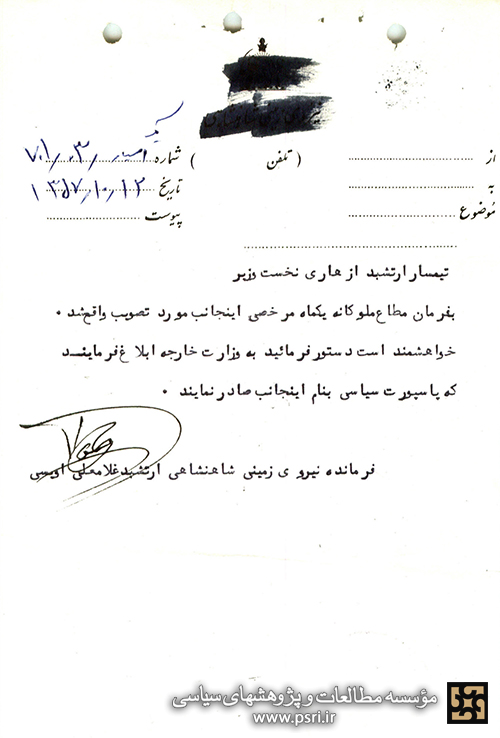 از ............ ( تلفن ) شماره ۷۰۱/۰۳/
به ............ تاریخ ۱۳۵۷/۱۰/۱۲
مَوضوع ............ پیوست ............
تیمسار ارتشبد ازهاری نخست وزیر
بفرمان مطاع ملوکانه یکماه مرخصی اینجانب مورد تصویب واقع شد ۰
خواهشمند است دستور فرمائید به وزارت خارجه ابلاغ فرماینــد
که پاسپورت سیاسی بنام اینجانب صادر نمایند ۰
فرمانده نیروی زمینی شاهنشاهی ارتشبد غلامعلی اویسی
مؤسسه مطالعات و پژوهشهای سیاسی
www.psri.ir